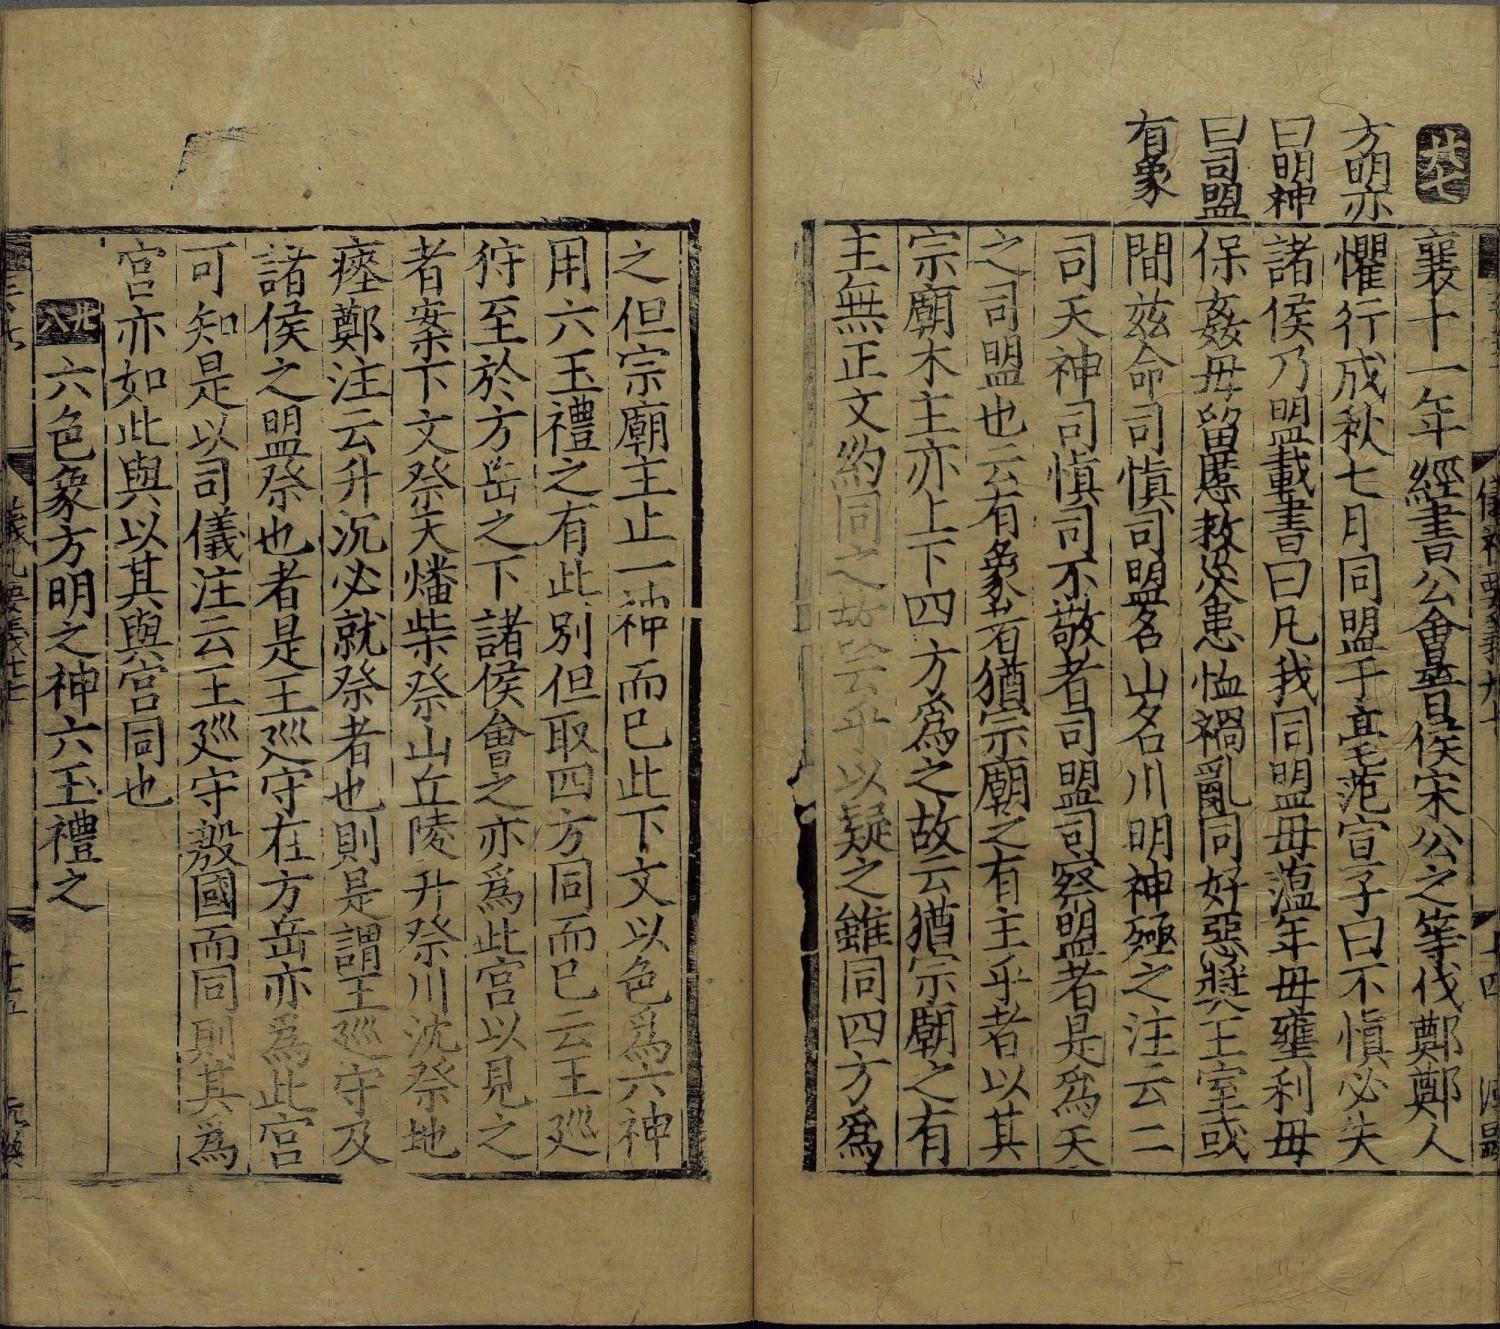 廿七
方明亦
曰明神
曰司盟
有象
襄十一年經書公會晉侯宋公之等伐鄭鄭人
懼行成秋七月同盟于亳范宣子曰不慎必失
諸侯乃盟載書曰凡我同盟毋薀年毋壅利毋
保姦毋留慝救災患恤禍亂同好惡奬王室或
間兹命司慎司盟名山名川明神殛之注云二
司天神司慎司不敬者司盟司察盟者是爲天
之司盟也云有象者猶宗廟之有主乎者以其
宗廟木主亦上下四方爲之故云猶宗廟之有
主無正文約同之故云乎以疑之雖同四方爲
之但宗廟主止一神而已此下文以色爲六神
用六玉禮之有此別但取四方同而已云王廵
狩至於方岳之下諸侯會之亦爲此宫以見之
者案下文祭天燔柴祭山丘陵升祭川沈祭地
瘞鄭注云升沉必就祭者也則是謂王廵守及
諸侯之盟祭也者是王廵守在方岳亦爲此宫
可知是以司儀注云王廵守殷國而同則其爲
宫亦如此與以其與宫同也
廿八 六色象方明之神六玉禮之